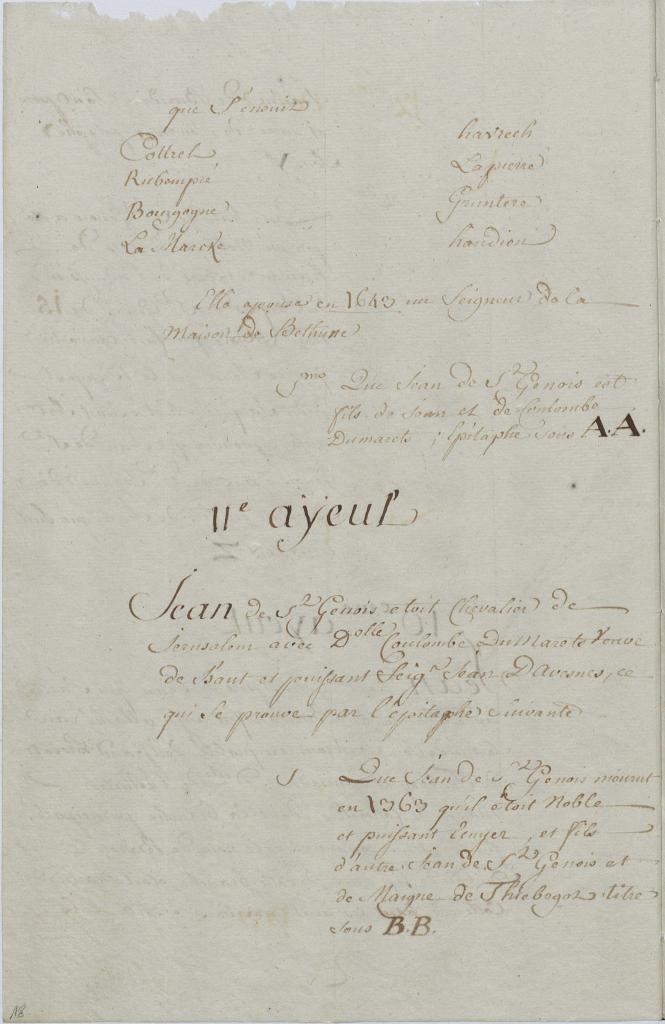 que s'ensuit
Cottrel havrech
Rubempré Lapierre
Bourgogne Gruutere
La Marcke handion
Elle epousa en 1643 un Seigneur de la
Maison de Bethune
Que Jean de St Genois est
fils de Jean et de Coulombe
Dumarets ; Epitaphe sous A.A.
11e ayeul
Jean de St Genois etoit Chevalier de
Jerusalem avec Dolle Coulombe DuMarets veuve
de haut et puissant Seigr Jean D'Avesnes, ce
qui se prouve par l'épitaphe suivante
Que Jean de St Genois mourut
en 1363 qu'il étoit Noble
et puissant Ecuyer, et fils
d'autre Jean de St Genois et
de Maigne de Thiebegot titre
sous B.B.
18